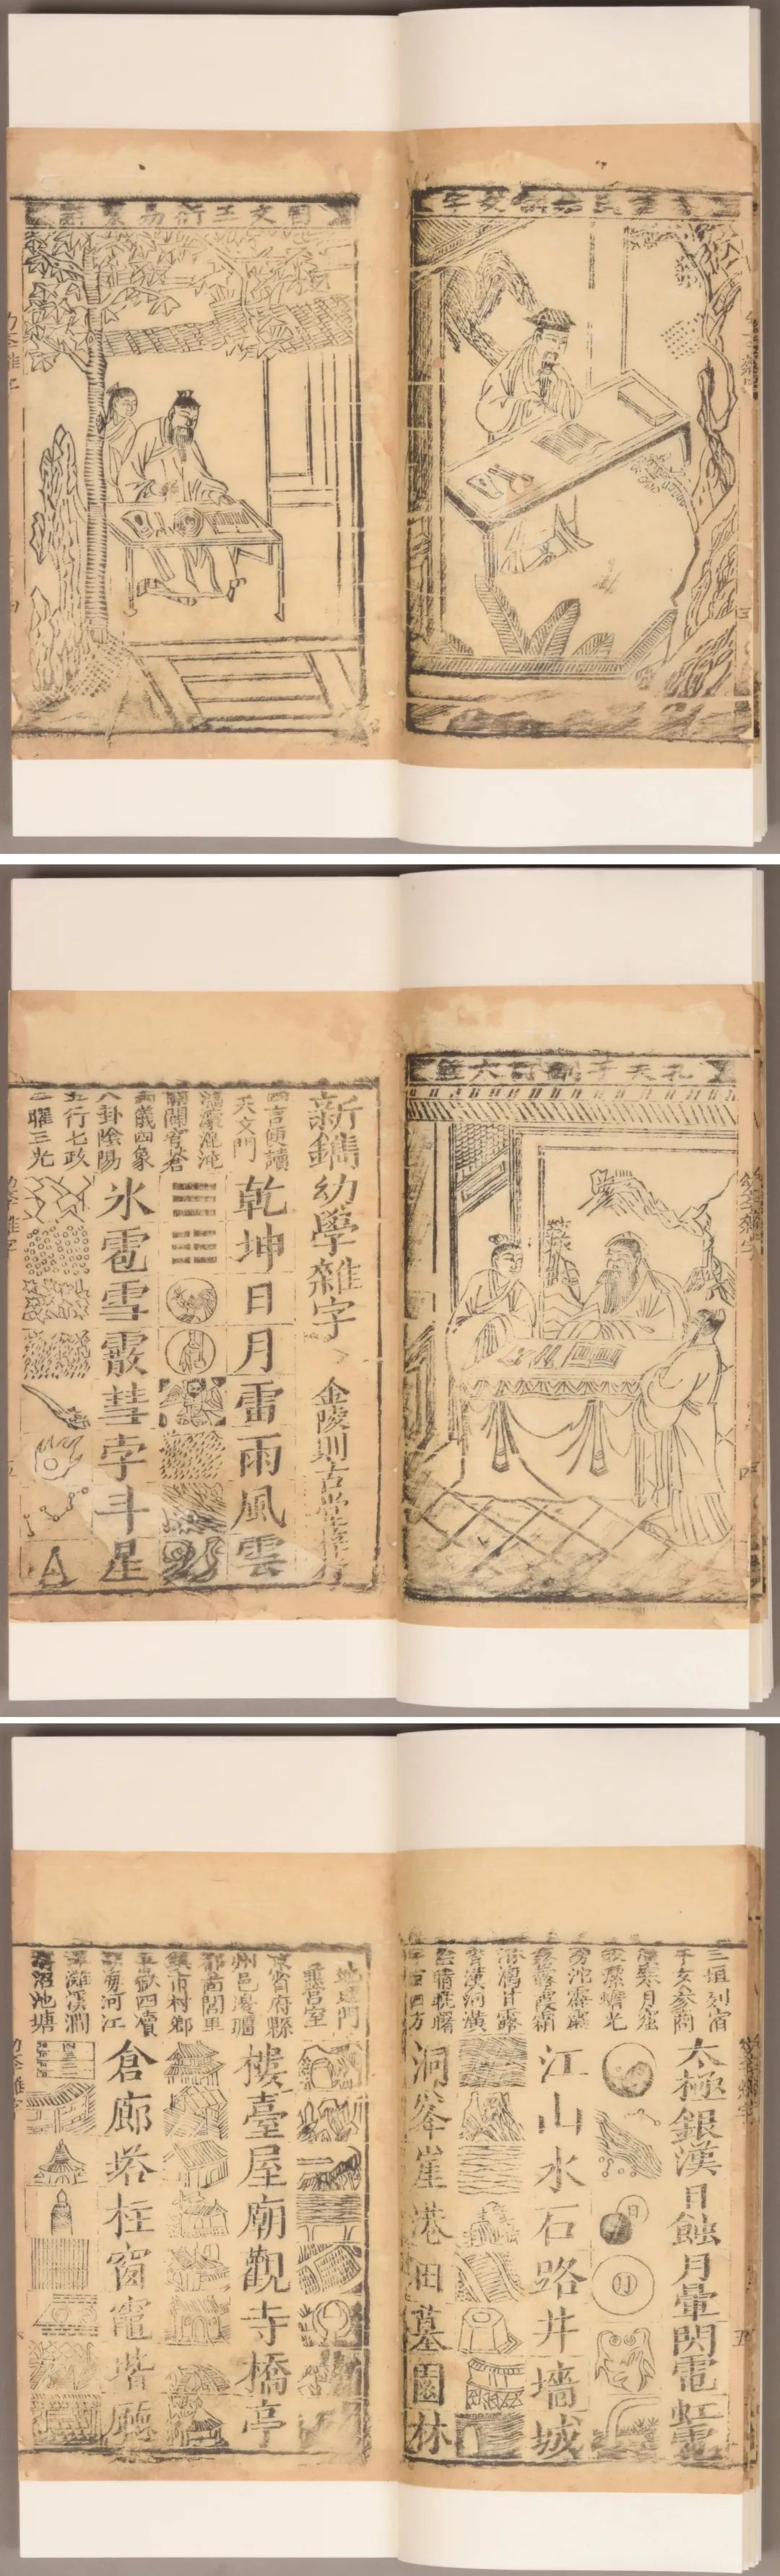 文王衍易
孔夫子刪訂六經
新鐫幼學雜字 金陵則古堂梓行
四言便讀
天文門
鴻濛混沌
開闢穹蒼
兩儀四象
八卦陰陽
五行七政
二曜三光
乾坤日月雷雨風雲
氷雹雪霰彗孛斗星
幼學雜字
三垣列宿
寒月窟
蟾光
滂沱
霞霜
甘露
四方
太極銀漢日蝕月暈閃電虹霓
江山水石路井墻城
洞峯崖港田墓園林
地理門
營室
京省府縣
州邑邊疆
閭里
鎮市村鄉
五嶽四瀆
湖海河江
灘溪澗
沼池塘
樓臺屋廟觀寺橋亭
倉廊塔柱窗竈堦廳